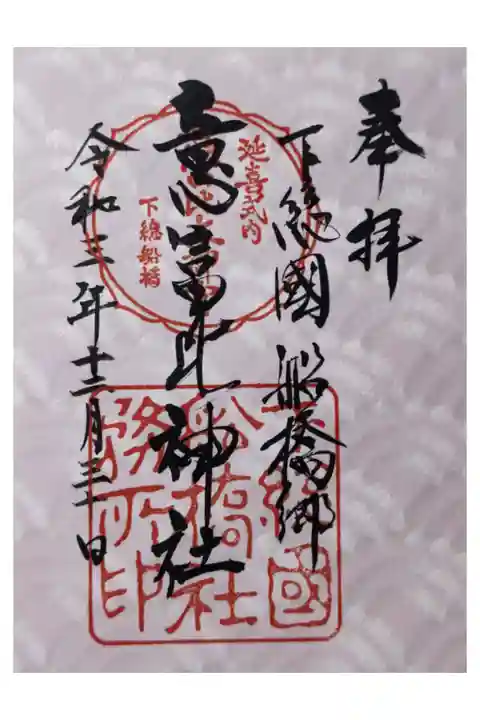 奉拝
下総國船橋郷
意富比神社
令和三年十二月三日
延喜式内
下總船橋
下総國
船橋社
務所印